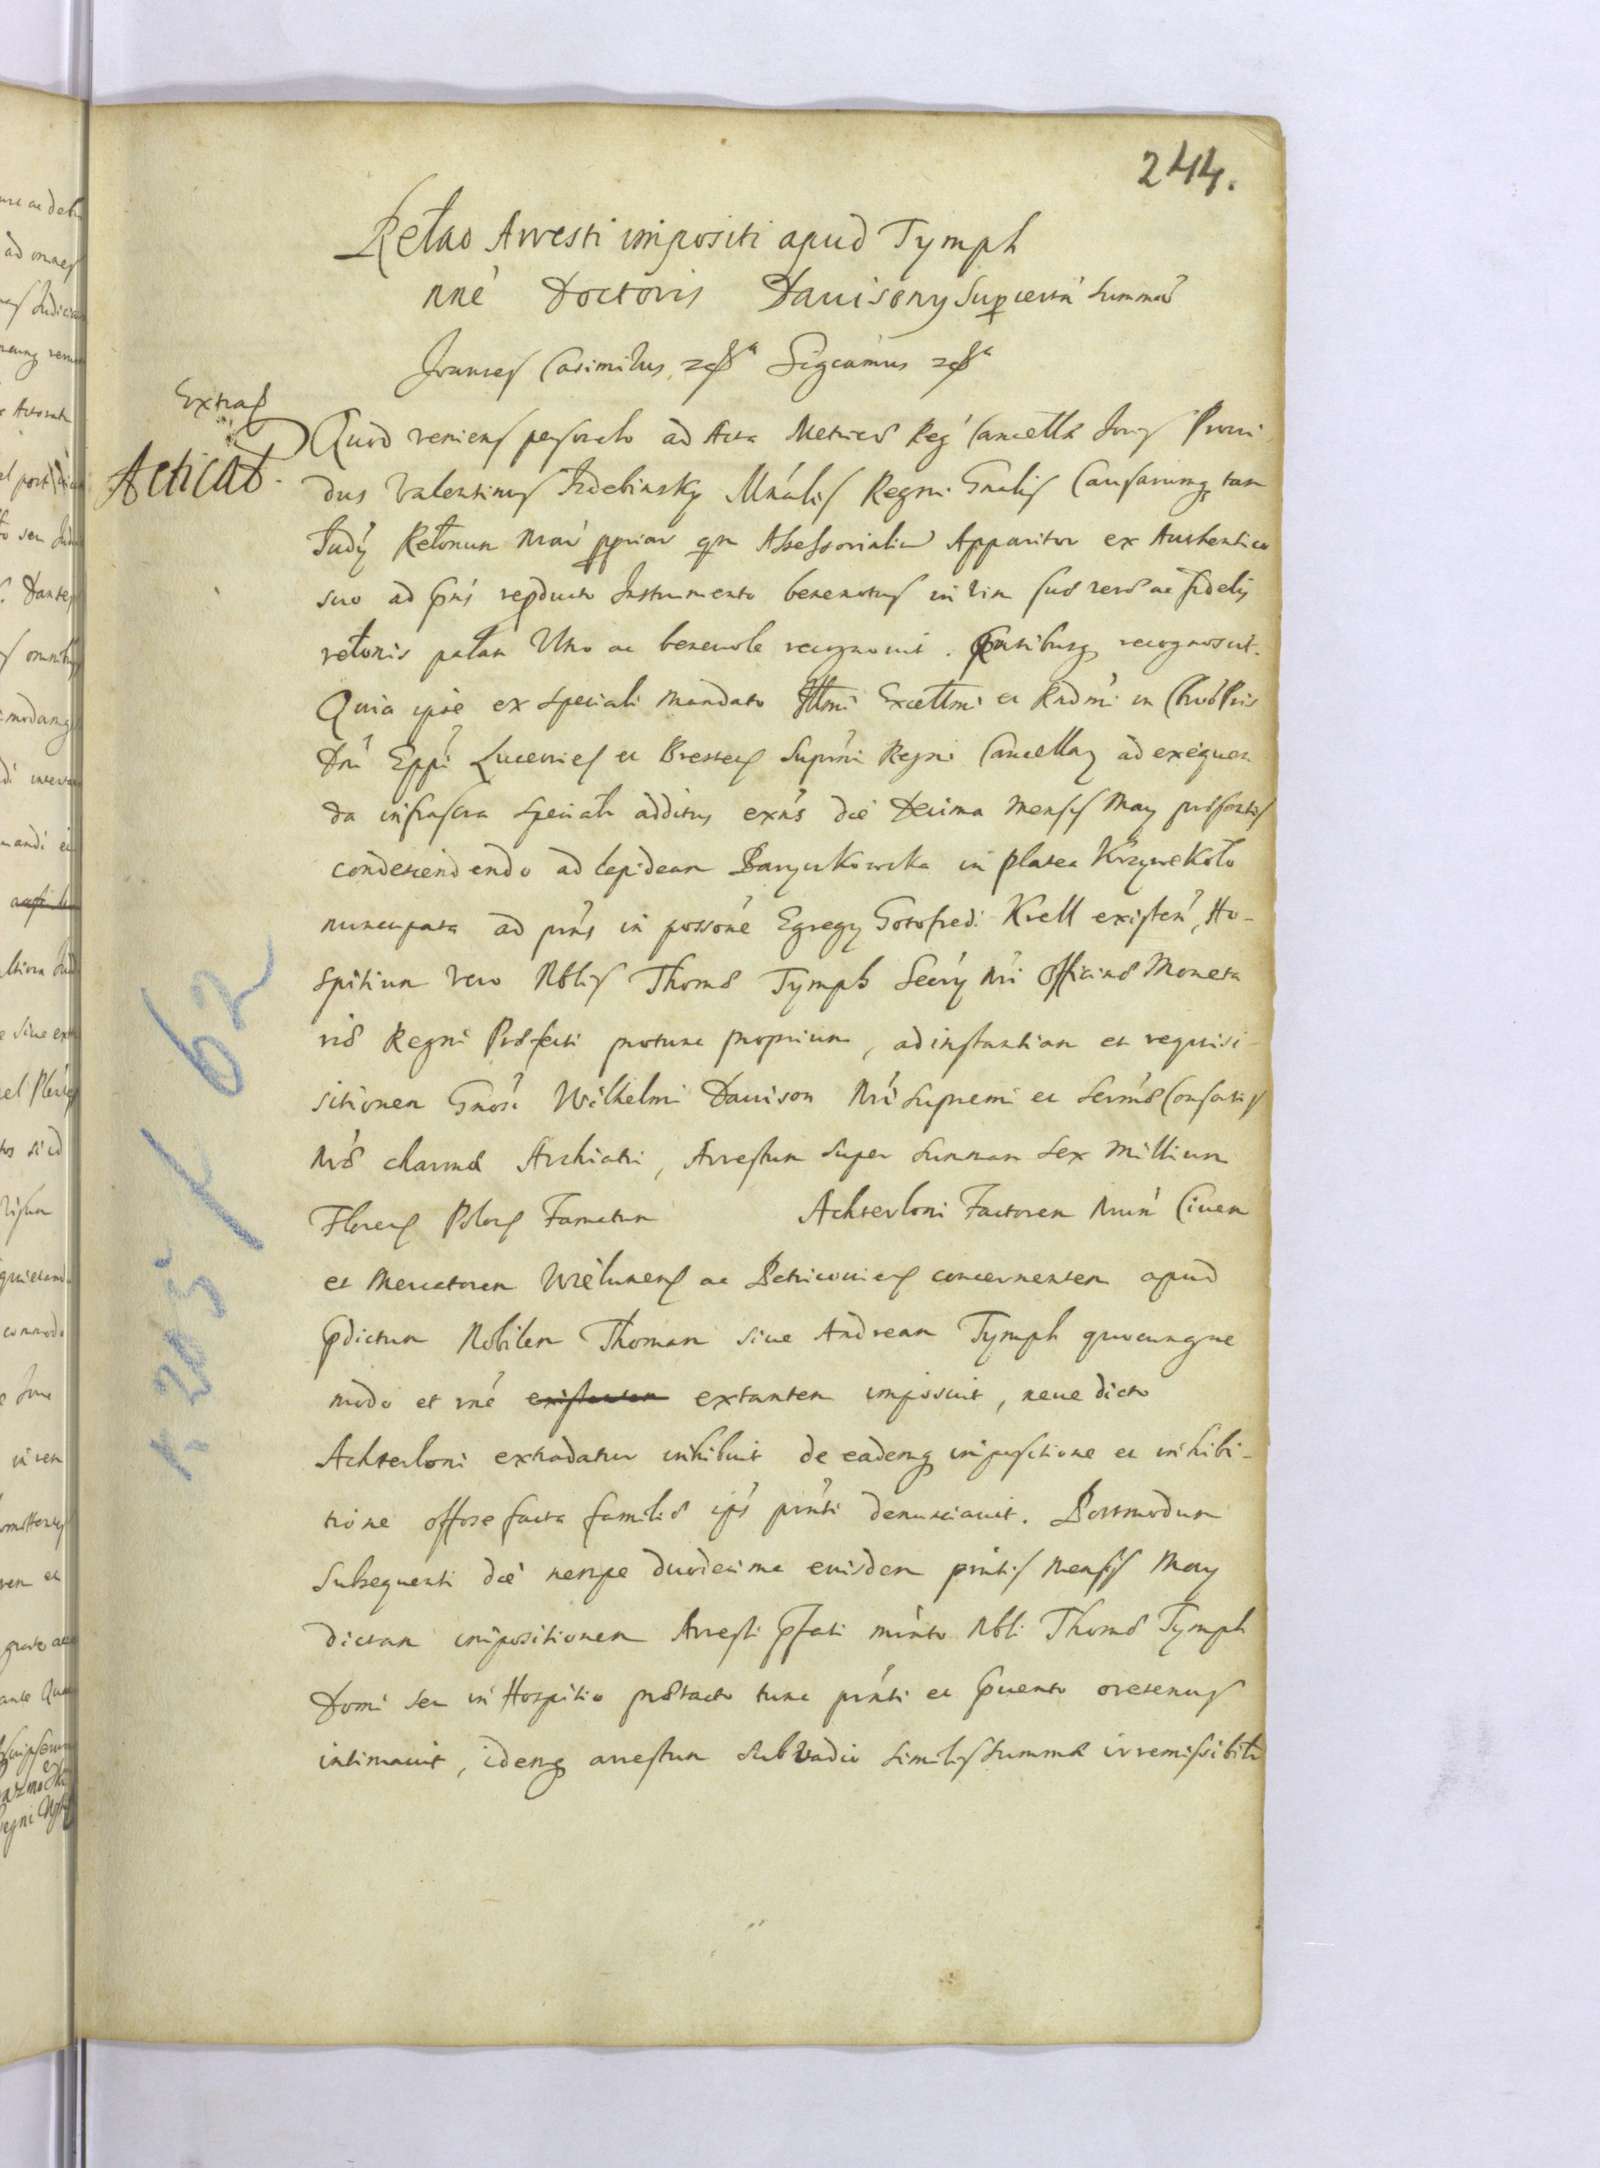 244.
Rełao Arresti impositi apud Tymph
nne Doctoris Davisony Super certa summa
Joannes Casimirus etc Significamus etc
Extras
Acticat.
Quod veniens personalr ad Acta Metrices Reg Cancellæ Joris Provi
dus Valentinus Izdebinsky Mnalis Regni Gnalis Causarumq tam
Judy Rełonum nrar ppriar qm Assessorialiu Apparitor ex Authentico
suo ad pns repducto Instrumento benenotus in vim suæ veræ ac fidelis
rełonis pałam Vtro ac benevole recognovit. pntibusq recognoscit.
Quia ipse ex speciali mandato Illmi Excellmi et Rndmi in Chro Pris
Dni Eppi Luceories et Brestes Suprmi Regni Cancellarij ad exequen
da infrascra speciatr additus exns die Decima mensis May præsentis
condescendendo ad lapideam Baryczkowska in platea Krzywekoło
nuncupata ad pns in possone Egregy Gotofredi Krell existen, Ho-
spitium vero Nblis Thomæ Tymph Secry nri Officinæ Moneta
riæ Regni Præfecti protunc proprium, ad instantiam et requisi
sitionem Gnosi Wilhelmi Davison nri supremi et Sermæ Consortis
nræ charmæ Archiatri, Arrestum super summam sex millium
Florens Polors Famatum Achterloni Factorem nrum Civem
et Mercatorem Wielunens ac Petricoviens concernentem apud
pdictum Nobilem Thomam sive Andream Tymph quocunque
modo et rne existentem extantem imposuit, neve dicto
Achterloni extradatur inhibuit de eademq impositione et inhibi-
tione offose facta familiæ ips pnti denunciavit. Postmodum
subsequenti die nempe duodecima eiusdem pntis mensis May
dictam impositionem Arresti pfati mnto Nbli Thomæ Tymph
Domi seu in Hospitio prætacto tunc pnti et pvento oretenus
intimavit, idemq arrestum sub vadio similis summæ irremissibilr
k. 203 / 62